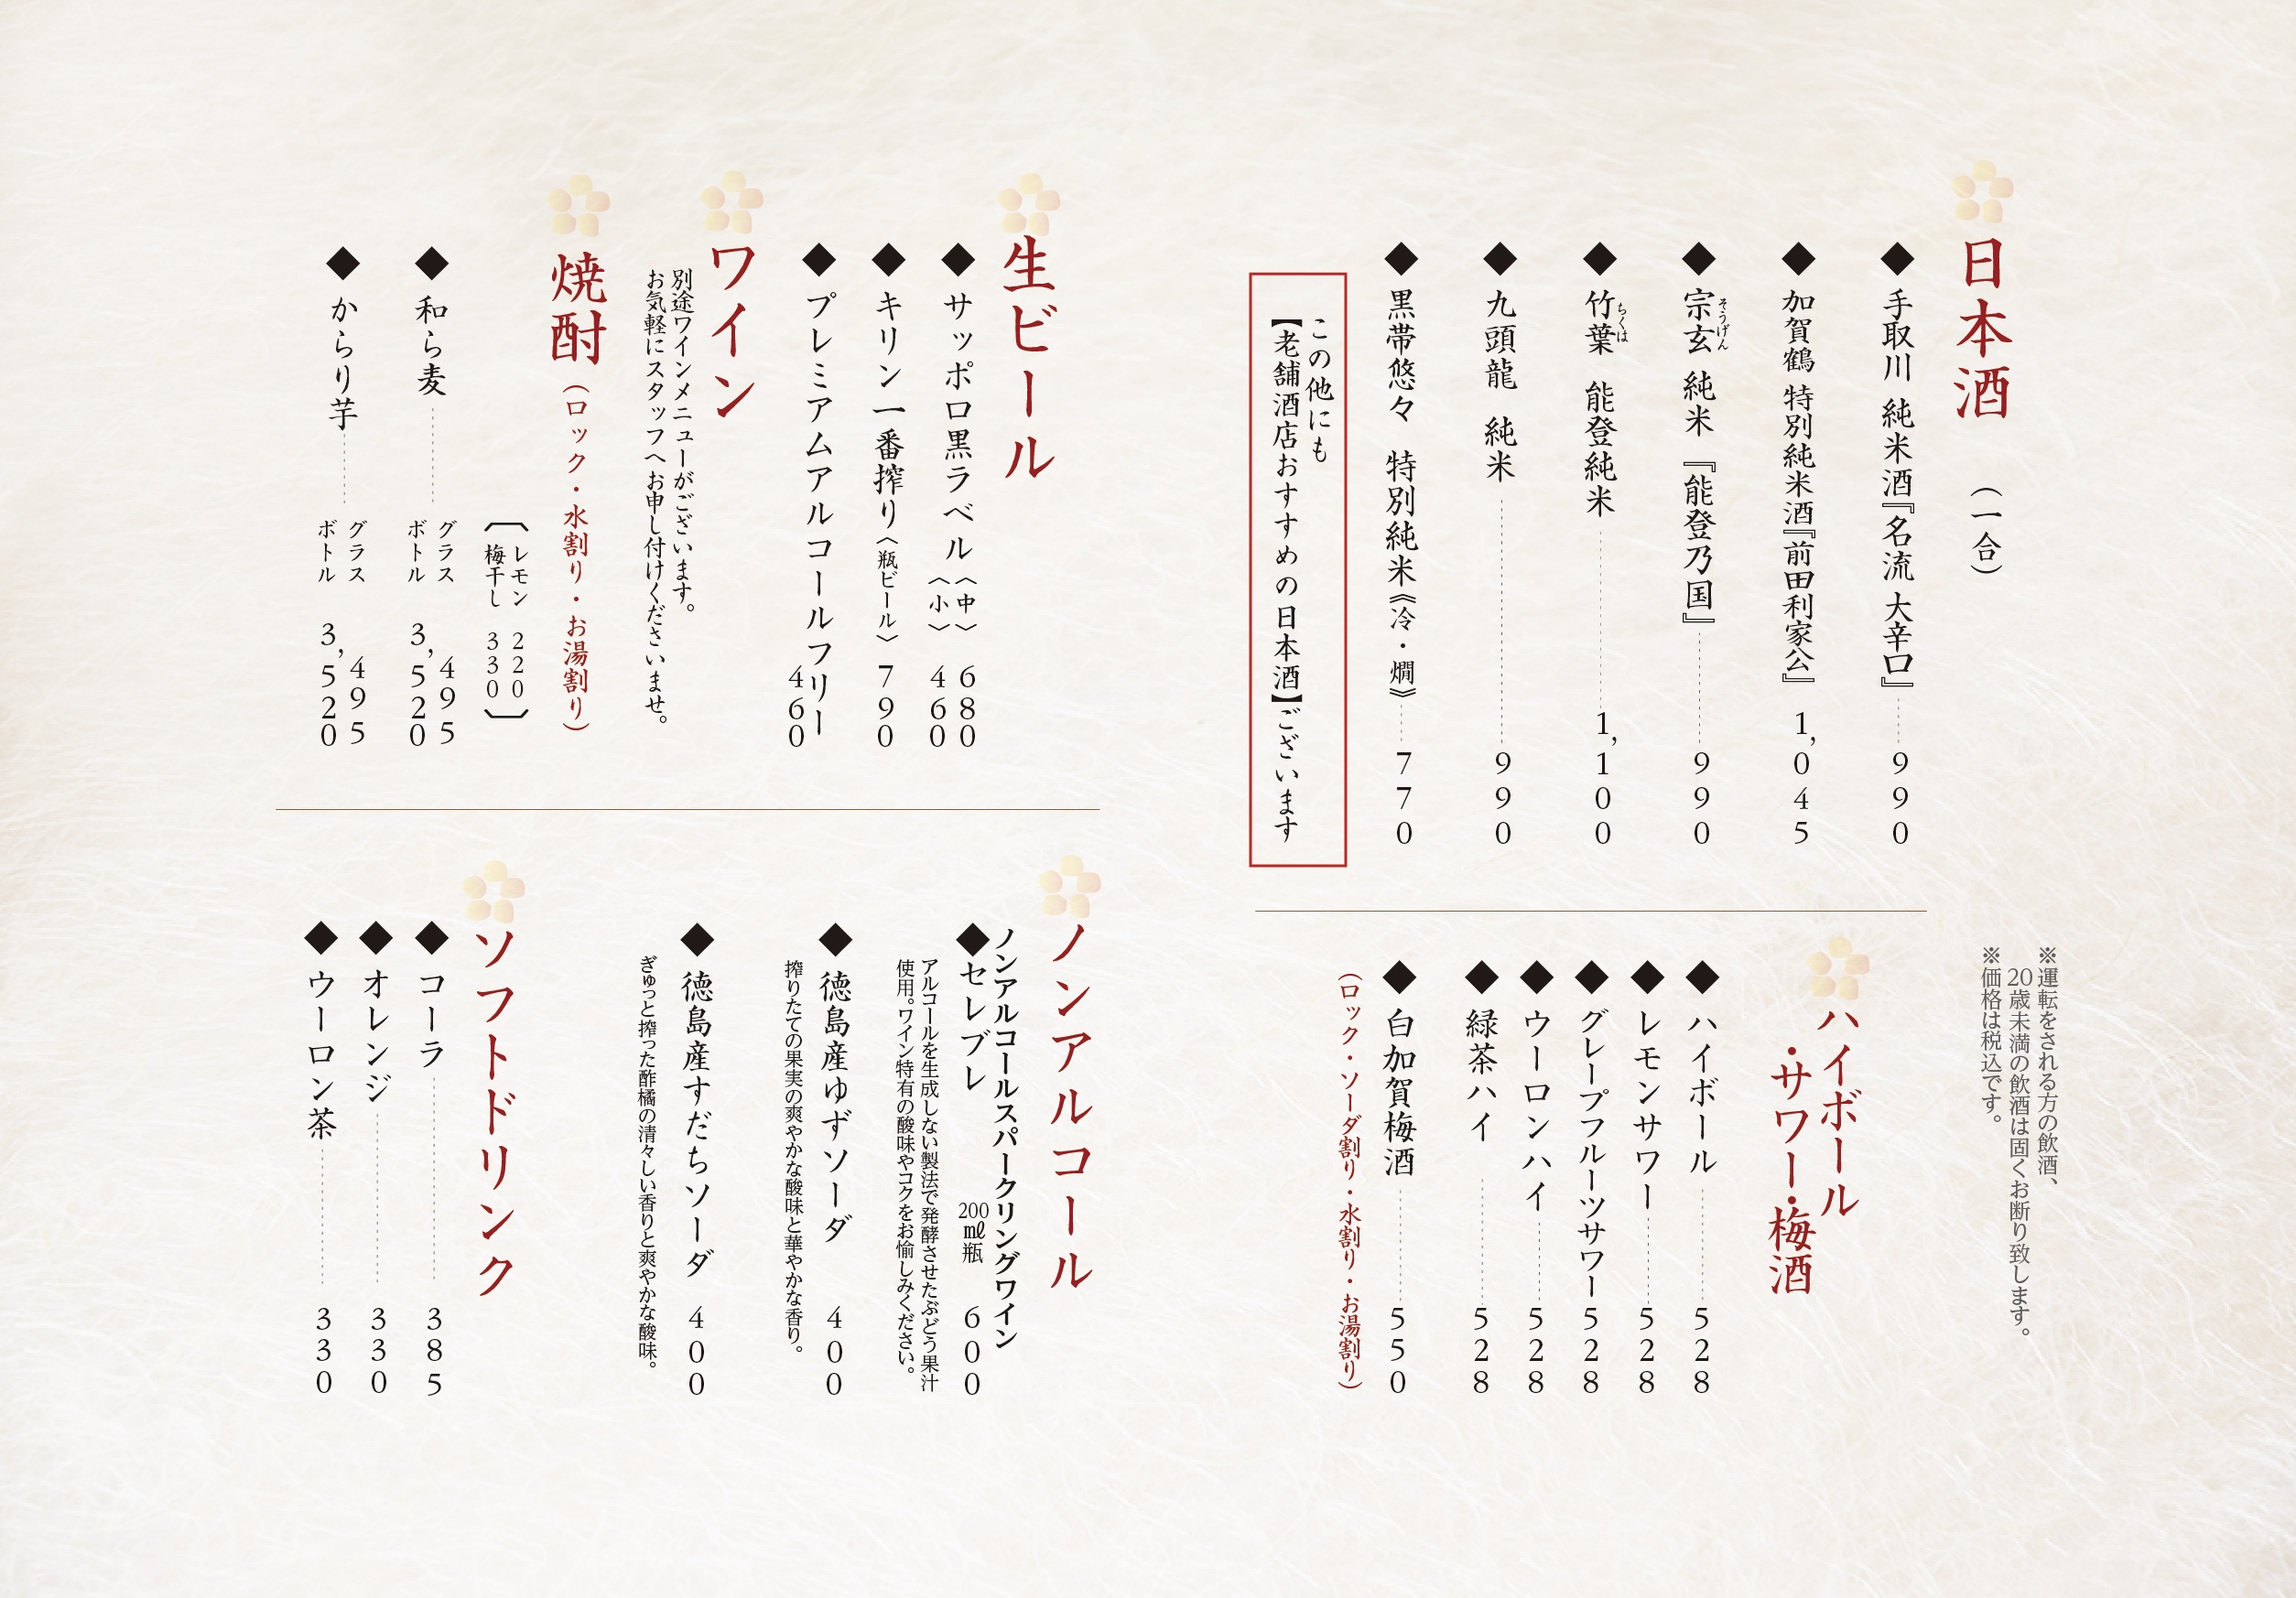 日本酒 （一合）
◆ 手取川 純米酒『名流 大辛口』 990
◆ 加賀鶴 特別純米酒『前田利家公』 1,045
◆ 宗玄 純米『能登乃国』 990
そうげん
◆ 竹葉 能登純米 1,100
ちくは
◆ 九頭龍 純米 990
◆ 黒帯悠々 特別純米《冷・燗》 770
この他にも
【老舗酒店おすすめの日本酒】ございます
※運転をされる方の飲酒、
20歳未満の飲酒は固くお断り致します。
※価格は税込です。
ハイボール
・サワー・梅酒
◆ ハイボール 528
◆ レモンサワー 528
◆ グレープフルーツサワー 528
◆ ウーロンハイ 528
◆ 緑茶ハイ 528
◆ 白加賀梅酒 550
（ロック・ソーダ割り・水割り・お湯割り）
生ビール
◆ サッポロ黒ラベル〈中〉 680
〈小〉 460
◆ キリン一番搾り〈瓶ビール〉 790
◆ プレミアムアルコールフリー 460
ワイン
別途ワインメニューがございます。
お気軽にスタッフへお申し付けくださいませ。
焼酎（ロック・水割り・お湯割り）
〔レモン 220
梅干し 330〕
◆ 和ら麦 グラス 495
ボトル 3,520
◆ からり芋 グラス 495
ボトル 3,520
ノンアルコール
ノンアルコールスパークリングワイン
◆セレブレ 200㎖瓶 600
アルコールを生成しない製法で発酵させたぶどう果汁
使用。ワイン特有の酸味やコクをお愉しみください。
◆ 徳島産ゆずソーダ 400
搾りたての果実の爽やかな酸味と華やかな香り。
◆ 徳島産すだちソーダ 400
ぎゅっと搾った酢橘の清々しい香りと爽やかな酸味。
ソフトドリンク
◆ コーラ 385
◆ オレンジ 330
◆ ウーロン茶 330